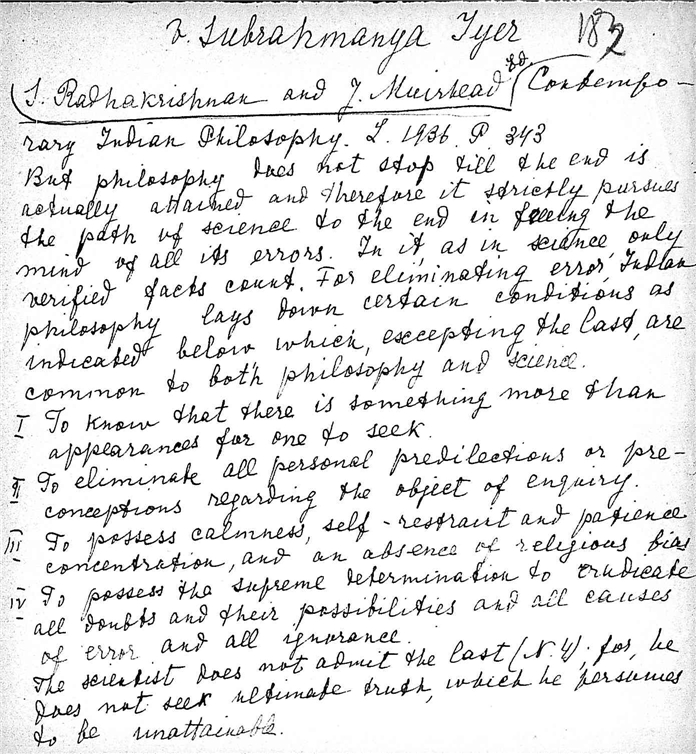 V. Subrahmanya Iyer 182
S. Radhakrishnan and J. Muirhead ed. Contempo-
rary Indian Philosophy. L. 1936. P 343
But philosophy does not stop till the end is
actually attained and therefore it strictly pursues
the path of science to the end in freeing the
mind of all its errors. In it, as in science, only
verified facts count. For eliminating error, Indian
philosophy lays down certain conditions as
indicated below which, excepting the last, are
common to both philosophy and science.
I To know that there is something more than
appearances for one to seek.
II To eliminate all personal predilections or pre-
conceptions regarding the object of enquiry.
III To possess calmness, self-restraint and patience
concentration, and an absence of religious bias
IV To possess the supreme determination to erudicate
all doubts and their possibilities and all causes
of error and all ignorance.
The scientist does not admit the last (N. 4), for, he
does not seek ultimate truth, which he persumes
to be unattainable.